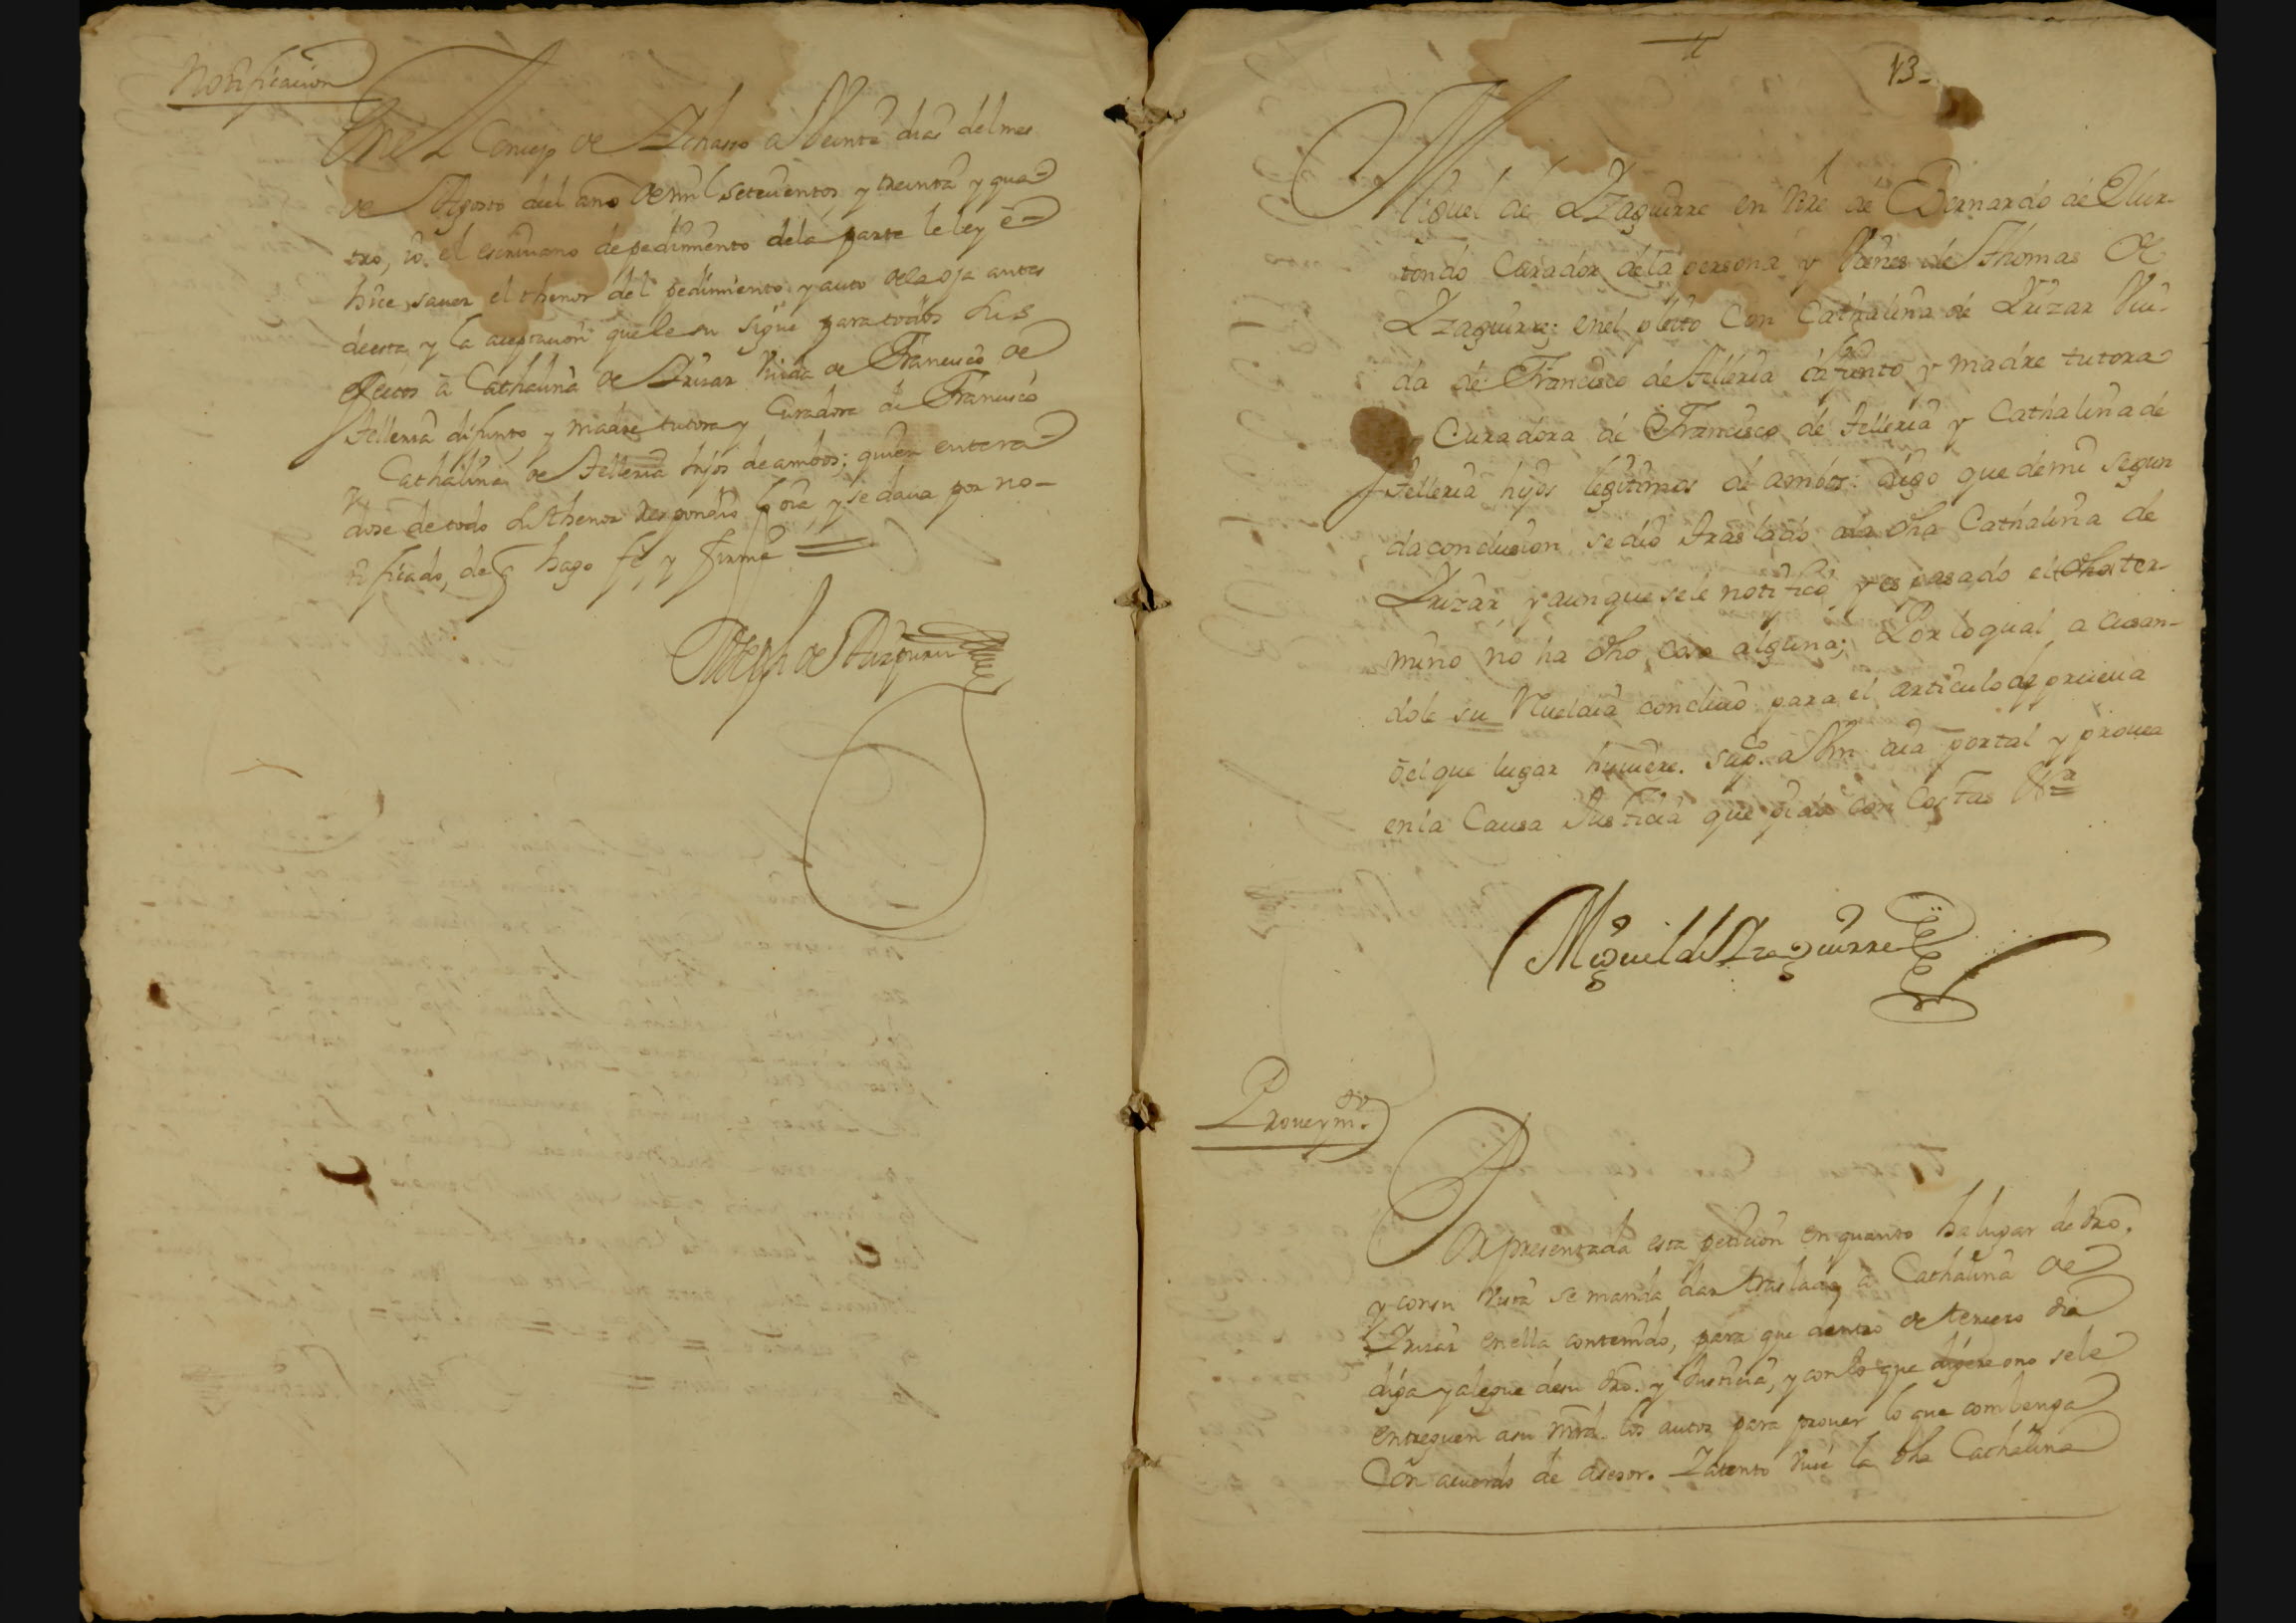 Notificacion
En el Concejo de Ichasso a Veinte dias del mes
de Agosto del año de mil setecientos y treinta y qua
tro, yo el escriuano de pedimento dela parte le ley è
hice sauer el thenor del pedimiento y auto dela oja antes
deesta, y la aceptacion que le sigue para todos sus
efectos à Cathalina de Irizar Viuda de Francisco de
Telleria difunto, y madre tutora y Curadora de Francisco
y Cathalina de Telleria hijos de ambos; quien entera
dose de todo su thenor respondio lo oia, y se daua por no-
tificado, de q hago fé, y firmé =
Joseph de
13-
Miguel de Yzaguirre en Nre de Bernardo de Elur-
tondo Curador dela persona y Bienes de Thomas de
Yzaguirre; enel pleito Con Cathalina de Yrizar Viu-
da de Francisco de Telleria difunto y madre tutora
y Curadora de Francisco de Telleria y Cathalina de
Telleria hijos legitimos de ambos: digo que de mi segun
da conclusion se dio traslado ala dha Cathalina de
Yrizar, y aunque sele notificó, y es pasado el ter-
mino no ha dho cosa alguna; Por lo qual, acusan-
dole su Rueldia concluio para el articulo de prueua
o el que lugar huuiere. Supco. a Vm. aia por tal y prouea
en la Causa Justicia que pido con Costas Vra
Miguel de Yzaguirre
Proueymto.
Por presentada esta peticion en quanto ha lugar de dro.
y consu vista se manda dar traslado à Cathalina de
Yrizar en ella contenido, para que dentro de tercero dia
diga y alegue de su dro. y Justicia, y con lo que digere ono sele
entreguen a su mrd. los autos para prouer lo que combenga
Con acuerdo de asesor. Y atento viue la dha Cathalina